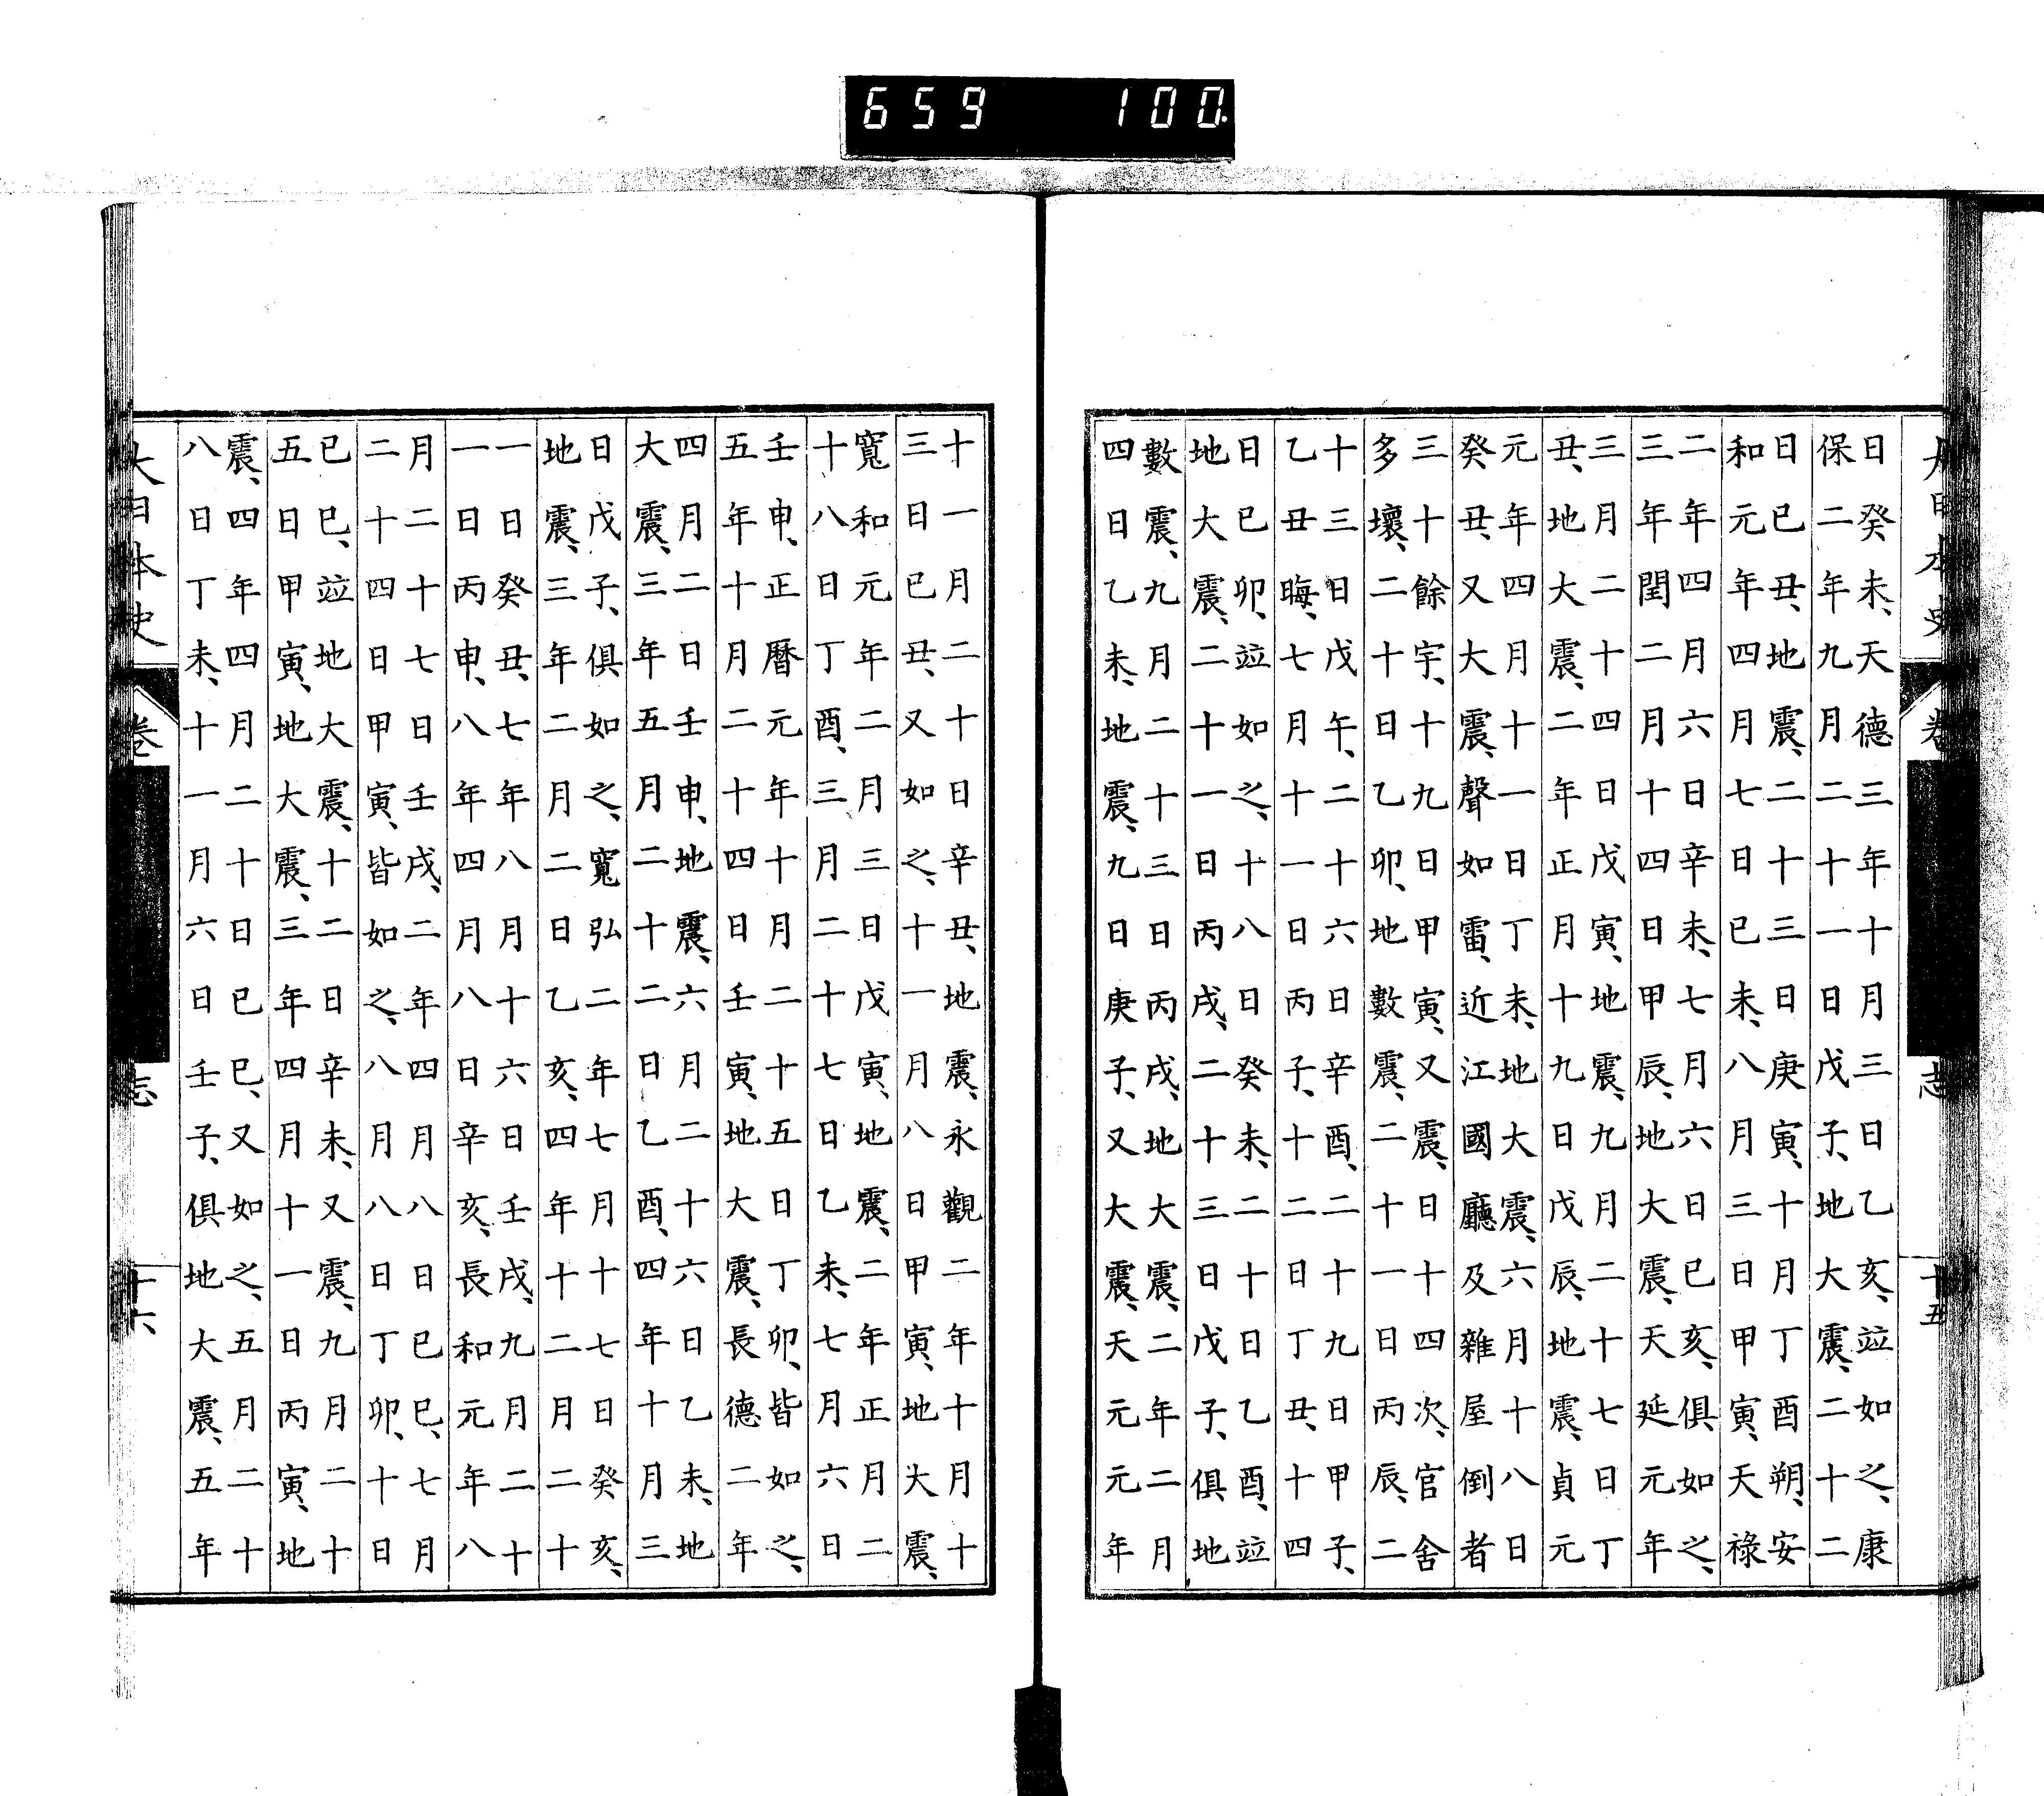 大日本史 卷 志 十五
日癸未、天德三年十月三日乙亥、竝如之、康
保二年九月二十一日戊子、地大震、二十二
日己丑、地震、二十三日庚寅、十月丁酉朔、安
和元年四月七日己未、八月三日甲寅、天祿
二年四月六日辛未、七月六日己亥、俱如之、
三年閏二月十四日甲辰、地大震、天延元年
三月二十四日戊寅、地震、九月二十七日丁
丑、地大震、二年正月十九日戊辰、地震、貞元
元年四月十一日丁未、地大震、六月十八日
癸丑、又大震、聲如雷、近江國廳及雜屋倒者
三十餘宇、十九日甲寅、又震、日十四次、官舍
多壞、二十日乙卯、地數震、二十一日丙辰、二
十三日戊午、二十六日辛酉、二十九日甲子、
乙丑晦、七月十一日丙子、十二日丁丑、十四
日己卯、竝如之、十八日癸未、二十日乙酉、竝
地大震、二十一日丙戌、二十三日戊子、俱地
數震、九月二十三日丙戌、地大震、二年二月
四日乙未、地震、九日庚子、又大震、天元元年
十一月二十日辛丑、地震、永觀二年十月十
三日己丑、又如之、十一月八日甲寅、地大震、
寬和元年二月三日戊寅、地震、二年正月二
十八日丁酉、三月二十七日乙未、七月六日
壬申、正曆元年十月二十五日丁卯、皆如之、
五年十月二十四日壬寅、地大震、長德二年
四月二日壬申、地震、六月二十六日乙未、地
大震、三年五月二十二日乙酉、四年十月三
日戊子、俱如之、寬弘二年七月十七日癸亥、
地震、三年二月二日乙亥、四年十二月二十
一日癸丑、七年八月十六日壬戌、九月二十
一日丙申、八年四月八日辛亥、長和元年八
月二十七日壬戌、二年四月八日己巳、七月
二十四日甲寅、皆如之、八月八日丁卯、十日
己巳、竝地大震、十二日辛未、又震、九月二十
五日甲寅、地大震、三年四月十一日丙寅、地
震、四年四月二十日己巳、又如之、五月二十
八日丁未、十一月六日壬子、俱地大震、五年
大日本史 卷 志 十六
659 100.